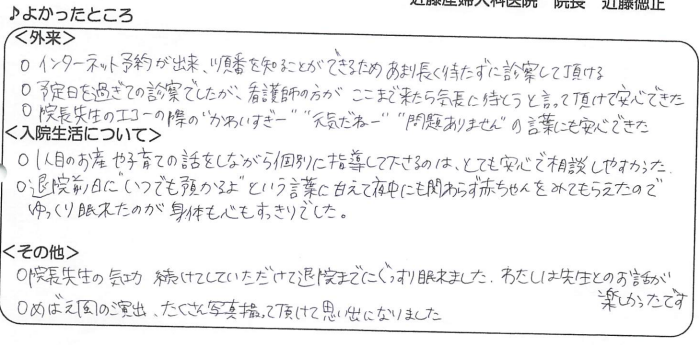 近藤産婦人科医院 院長 近藤徳正
♪よかったところ
<外来>
○ インターネット予約が出来、順番を知ることができるためあまり長く待たずに診察して頂ける
○ 予定日を過ぎての診察でしたが、看護師の方が ここまで来たら気長に待とうと言って頂けて安心できた
○ 院長先生のエコーの際の"かわいすぎー" "元気だねー" "問題ありません"の言葉にも安心できた
<入院生活について>
○ 1人目のお産や子育ての話をしながら個別に指導して下さるのは、とても安心で相談しやすかった。
○ 退院前日に"いつでも預かるよ"という言葉に甘えて夜中にも関わらず赤ちゃんをみてもらえたので
ゆっくり眠れたのが身体も心もすっきりでした。
<その他>
○ 院長先生の気功 続けてしていただけて退院までにぐっすり眠れました。わたしは先生とのお話が
楽しかったです
○ めばえ図の演出、たくさん写真撮って頂けて思い出になりました